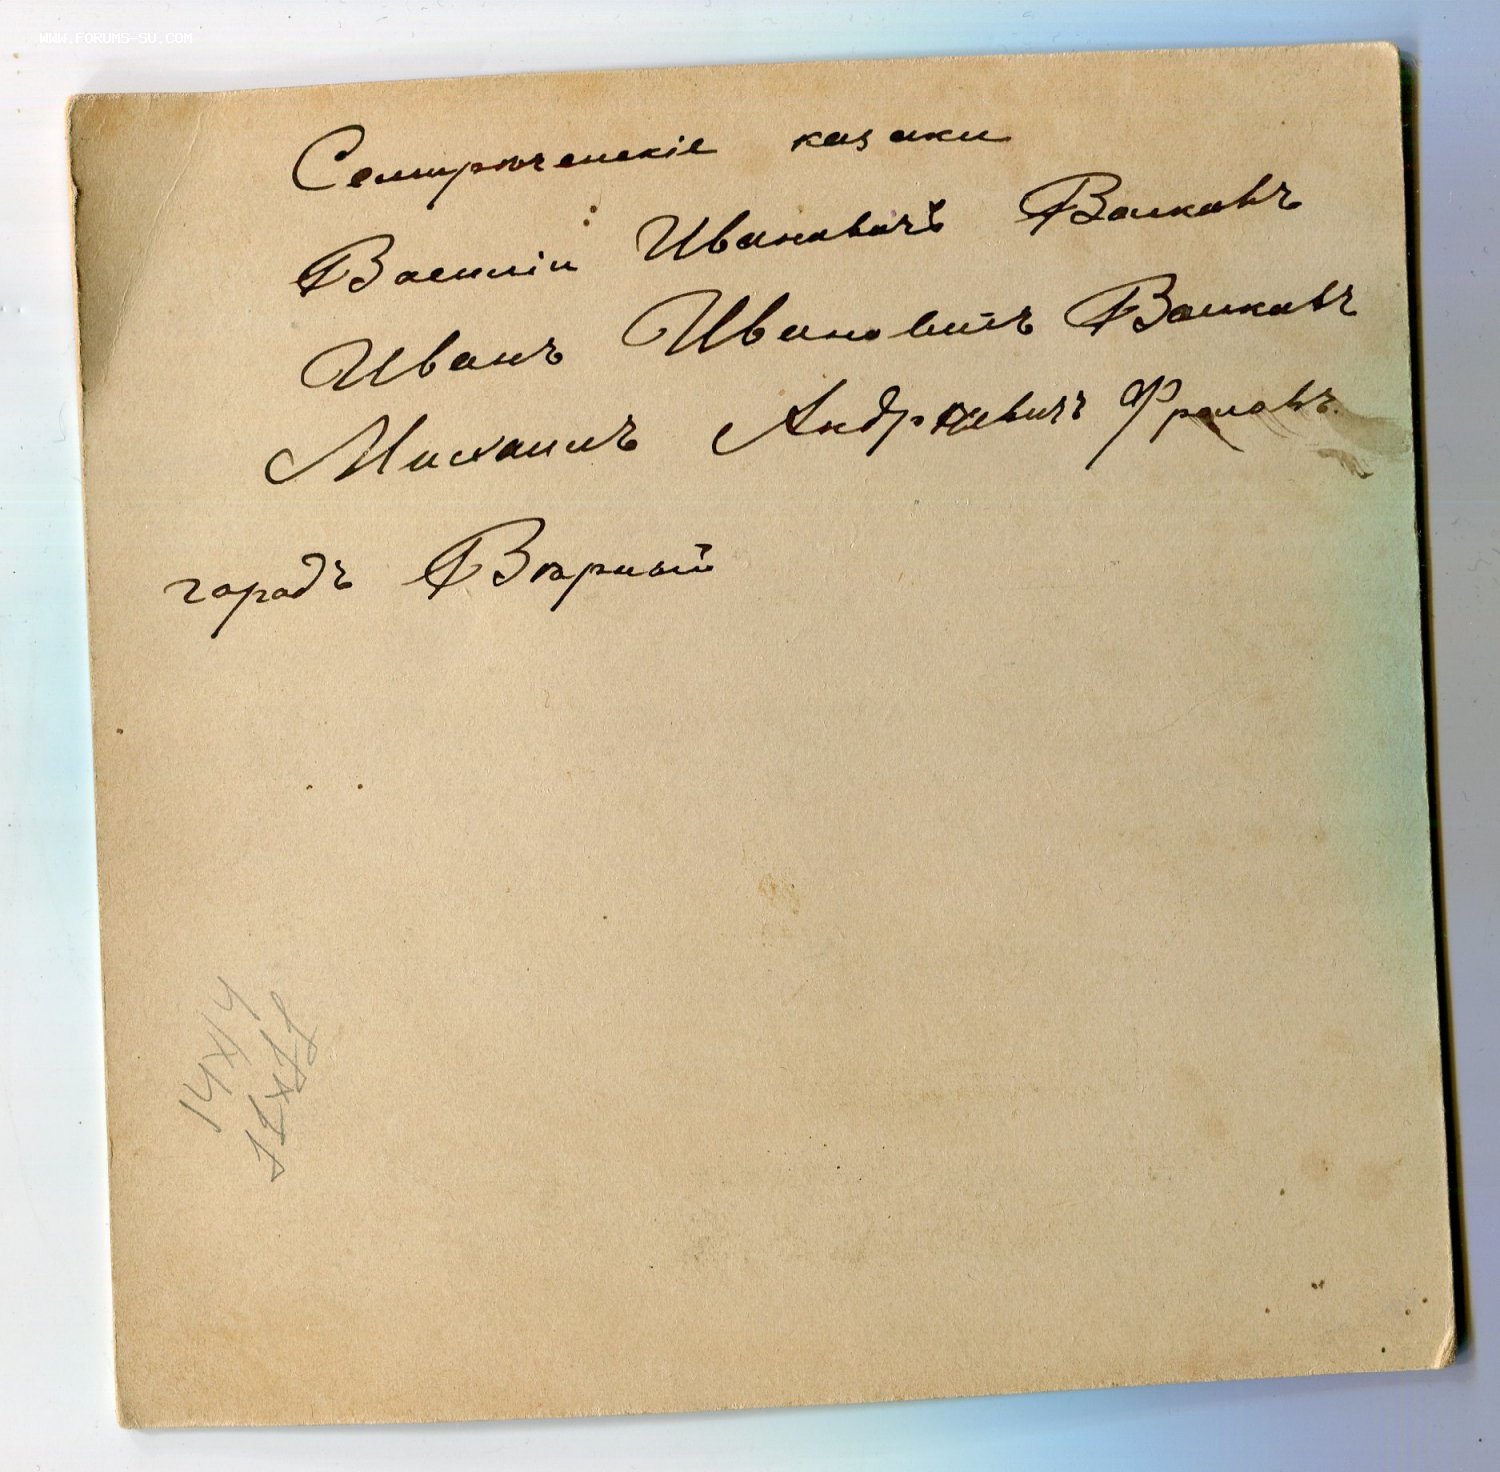 WWW.FORUMS-SU.COM
Семирѣченскіе казаки
Василіи Ивановичъ Волковъ
Иванъ Ивановичъ Волковъ
Михаилъ Андрѣевичъ Фроловъ.
городъ Вѣрный
14х14